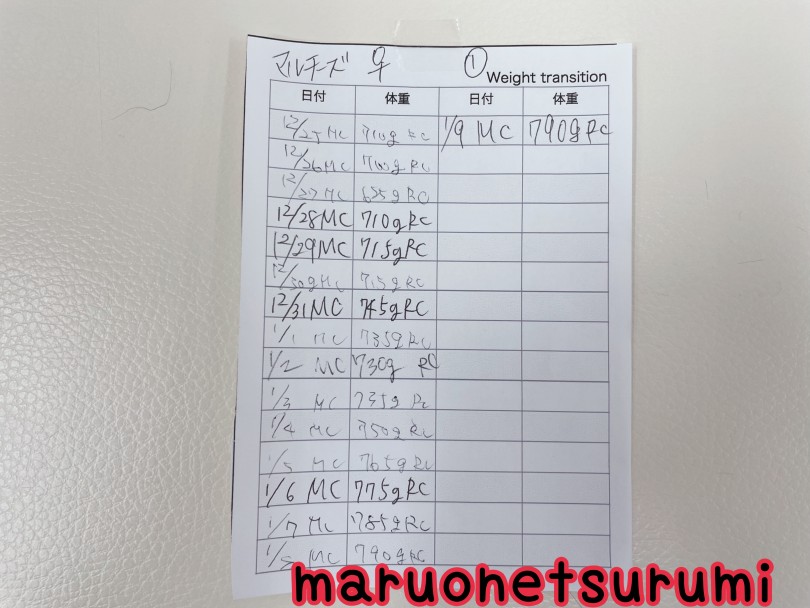 マルチーズ ♀ ①
Weight transition
日付 体重 日付 体重
12/25 MC 710g RC 1/9 MC 790g RC
12/26 MC 700g RC
12/27 MC g RC
12/28 MC 710g RC
12/29 MC 715g RC
12/30 MC 715g RC
12/31 MC 745g RC
1/1 MC 735g RC
1/2 MC 730g RC
1/3 MC 735g RC
1/4 MC 750g RC
1/5 MC 765g RC
1/6 MC 775g RC
1/7 MC 785g RC
MC 790g RC
maruohetsurumi